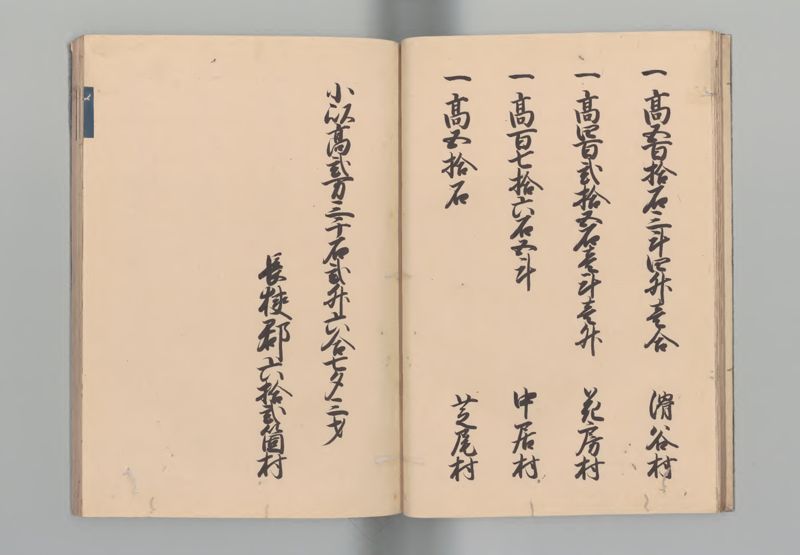 一高五百拾石三斗四升壱合　滑谷村
一高四百弐拾五石壱斗壱升　花房村
一高百七拾六石五斗　中居村
一高五拾石　芝尾村
小以高弐万三千石弐升六合七夕二才
長狭郡六拾弐箇村